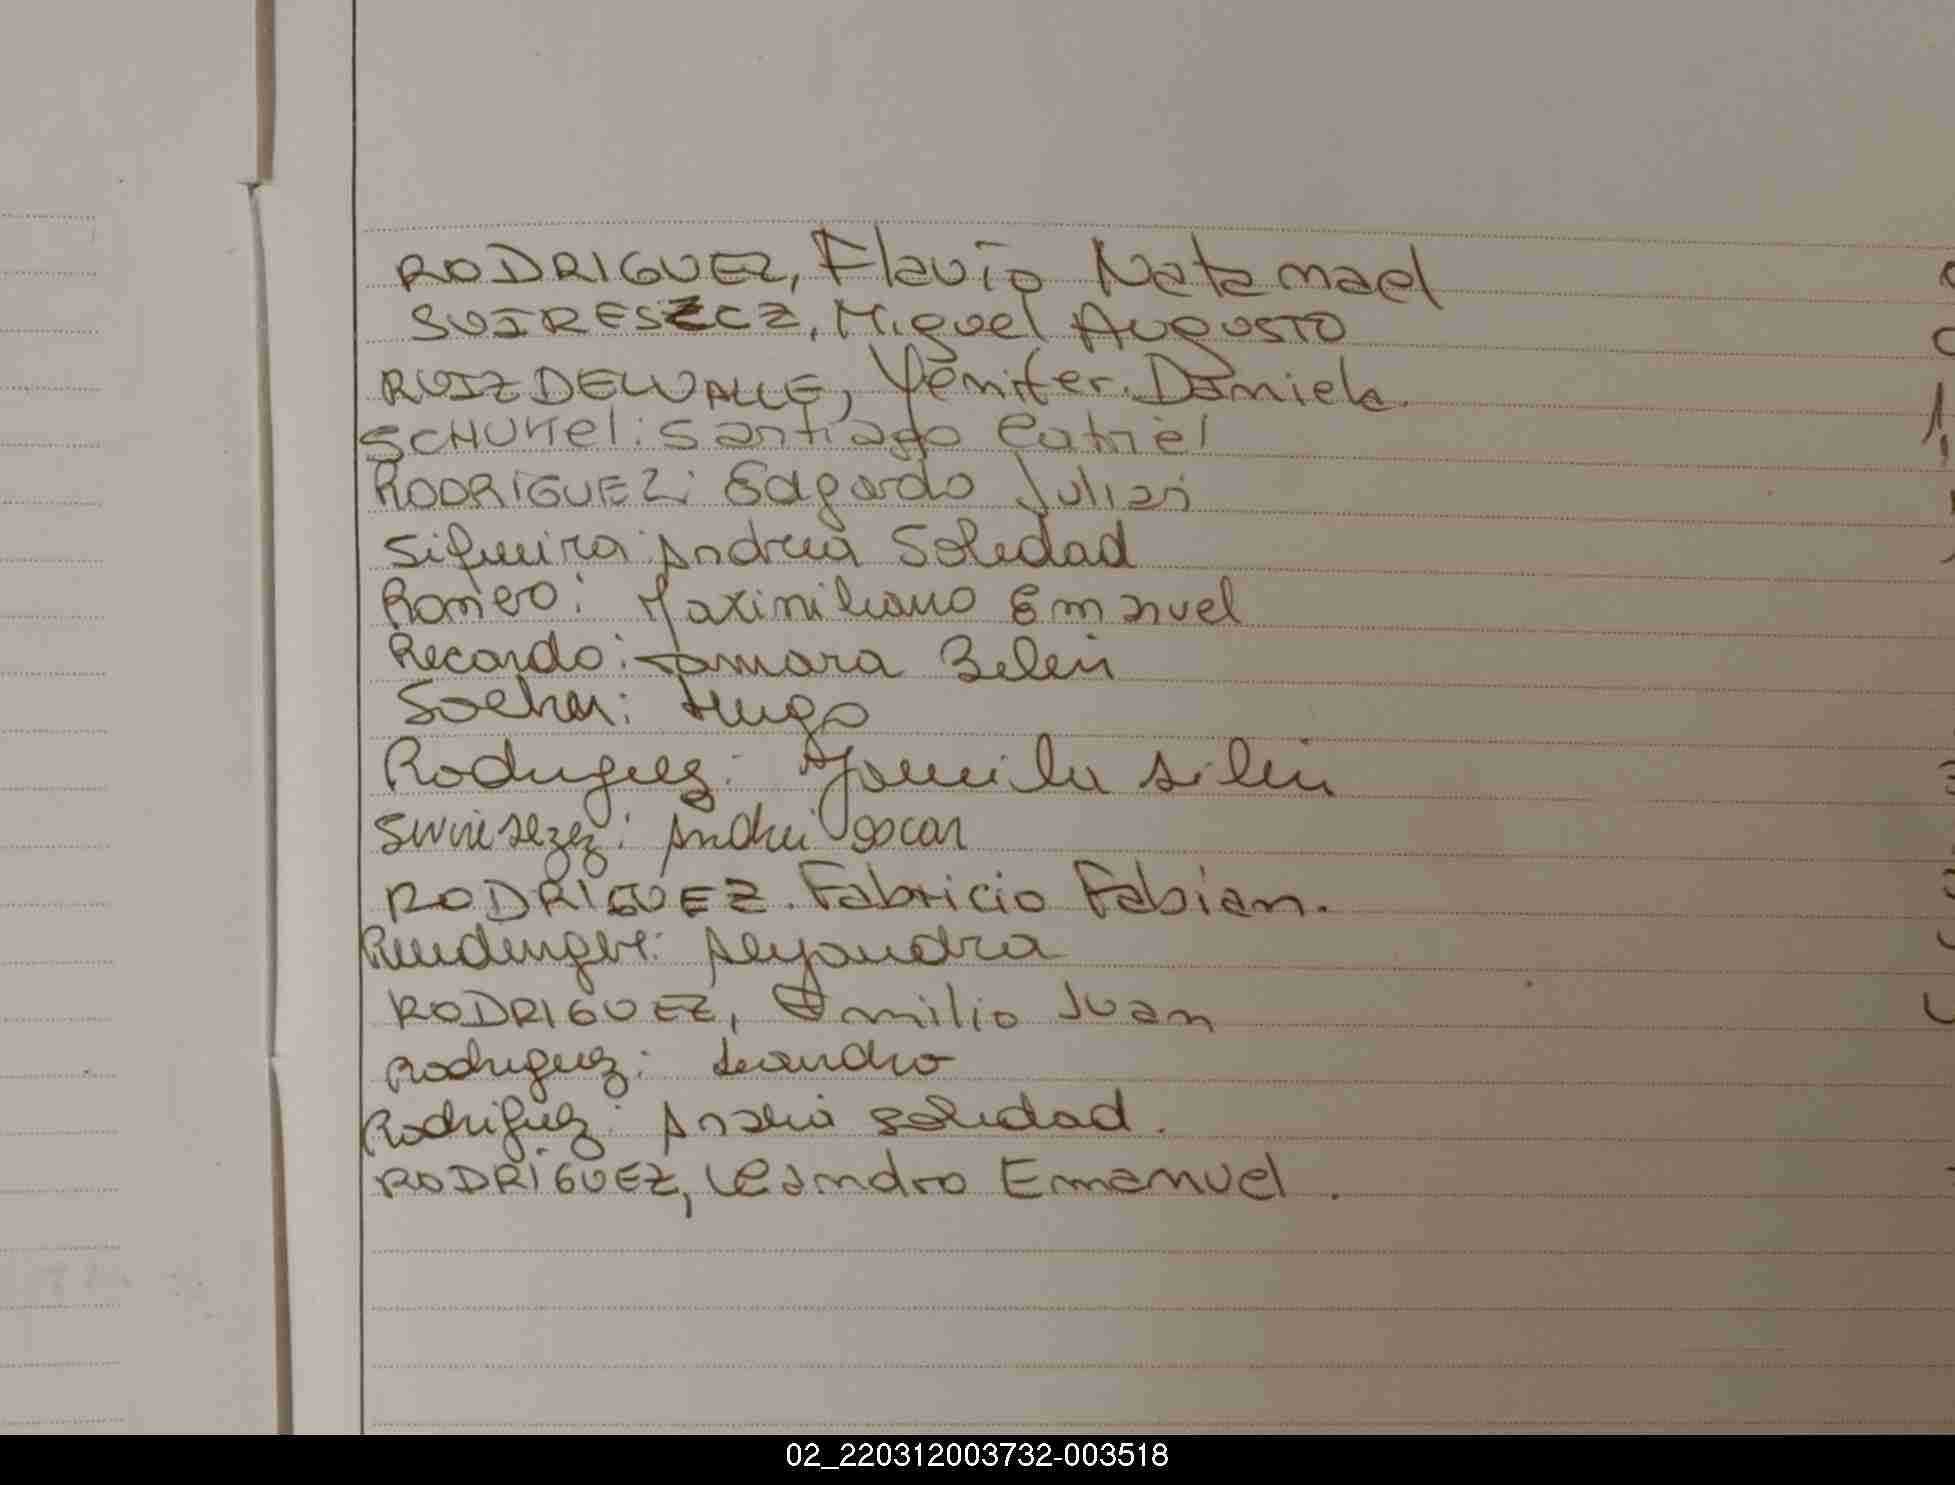 RODRIGUEZ, Flavio Natanael
SUIRESZCZ, Miguel Augusto
RUIZDELVALLE, Yenifer Daniela.
SCHUKel: Santiago Catriel
RODRIGUEZ: Edgardo Julian
Sifueira: Andrea Soledad
Romero: Maximiliano Emanuel
Recardo: Tamara Belen
Hugo
Rodriguez: Yamila
Andrei Oscar
RODRIGUEZ. Fabricio Fabian.
Alejandra
RODRIGUEZ, Emilio Juan
Rodriguez: Leandro
Rodriguez: Analia Soledad.
RODRIGUEZ, Leandro Emanuel.
02_220312003732-003518